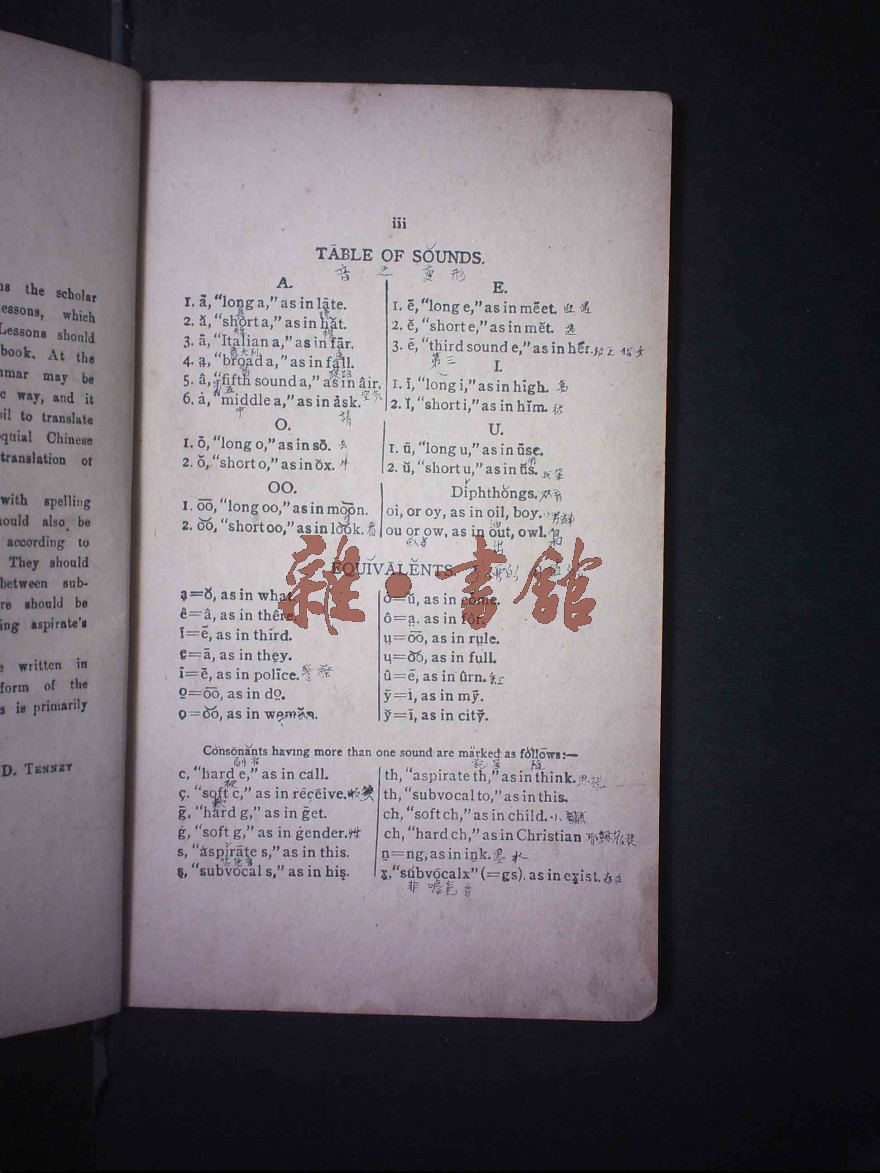 ns the scholar
essons, which
Lessons should
book. At the
nmar may be
c way, and it
oil to translate
quial Chinese
translation of
with spelling
hould also be
according to
They should
between sub-
re should be
ing aspirate's
e written in
form of the
s is primarily
D. TENNEY
iii
TĀBLE OF SOŬNDS.
音之變形
A.
1. ā, “long a,” as in lāte.
2. ă, “short a,” as in hăt.
3. ä, “Italian a,” as in fär.
意大利
4. a̤, “broad a,” as in fa̤ll.
5. â, “fifth sound a,” as in âir. 空氣
第五
6. ȧ, “middle a,” as in ȧsk.
中 請
O.
1. ō, “long o,” as in sō.
2. ŏ, “short o,” as in ŏx. 牛
OO.
1. o͞o, “long oo,” as in mo͞on.
2. o͝o, “short oo,” as in lo͝ok. 看
E.
1. ē, “long e,” as in mēet.
2. ĕ, “short e,” as in mĕt. 遇
3. ẽ, “third sound e,” as in hẽr.
第三
I.
1. ī, “long i,” as in hīgh. 高
2. ĭ, “short i,” as in hĭm. 彼
U.
1. ū, “long u,” as in ūse.
2. ŭ, “short u,” as in ŭs. 我等
Diphthŏngs. 双音
oi, or oy, as in oil, boy.
ou or ow, as in out, owl.
油 出
ĒQUĬVĀLĔNTS.
a̤=ŏ, as in what.
ê=â, as in thêre.
ĩ=ẽ, as in thĩrd.
e̱=ā, as in the̱y.
ï=ē, as in polïce. 警察
o̤=o͞o, as in do̤.
o̤=o͝o, as in wo̤măn.
ȯ=ŭ, as in cȯme.
ô=a̤, as in fôr.
ṳ=o͞o, as in rṳle.
ṳ=o͝o, as in fṳll.
û=ẽ, as in ûrn. 缸
ȳ=ī, as in mȳ.
y̆=ĭ, as in city̆.
Consonants having more than one sound are marked as follows:—
c, “hard e,” as in call.
硬
ç, “soft c,” as in rēçēive.
軟
ḡ, “hard g,” as in ḡet.
ġ, “soft g,” as in ġender. 性
s, “aspirate s,” as in this.
ş, “subvocal s,” as in hiş.
th, “aspirate th,” as in think. 思想
th, “subvocal to,” as in this.
ch, “soft ch,” as in child.
ch, “hard ch,” as in Christian
ṉ=ng, as in iṉk. 墨水
x̱, “subvocalx” (=gs). as in ex̱ist. 存在
雜•書館